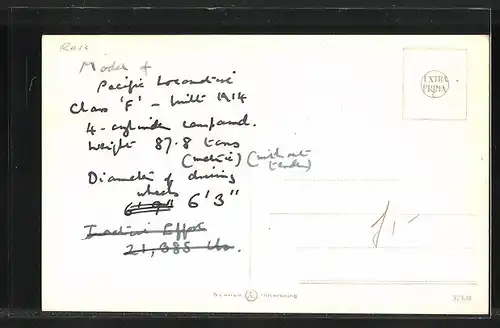 Rail
Model of
Pacific Locomotive
Class 'F' - built 1914
4-cylinder compound.
Weight 87.8 tons
(metric) (without
tender)
Diameter of driving
wheels
6'9" 6'3"
Tractive Effort
21,385 lbs.
EXTRA
PRIMA
1,-